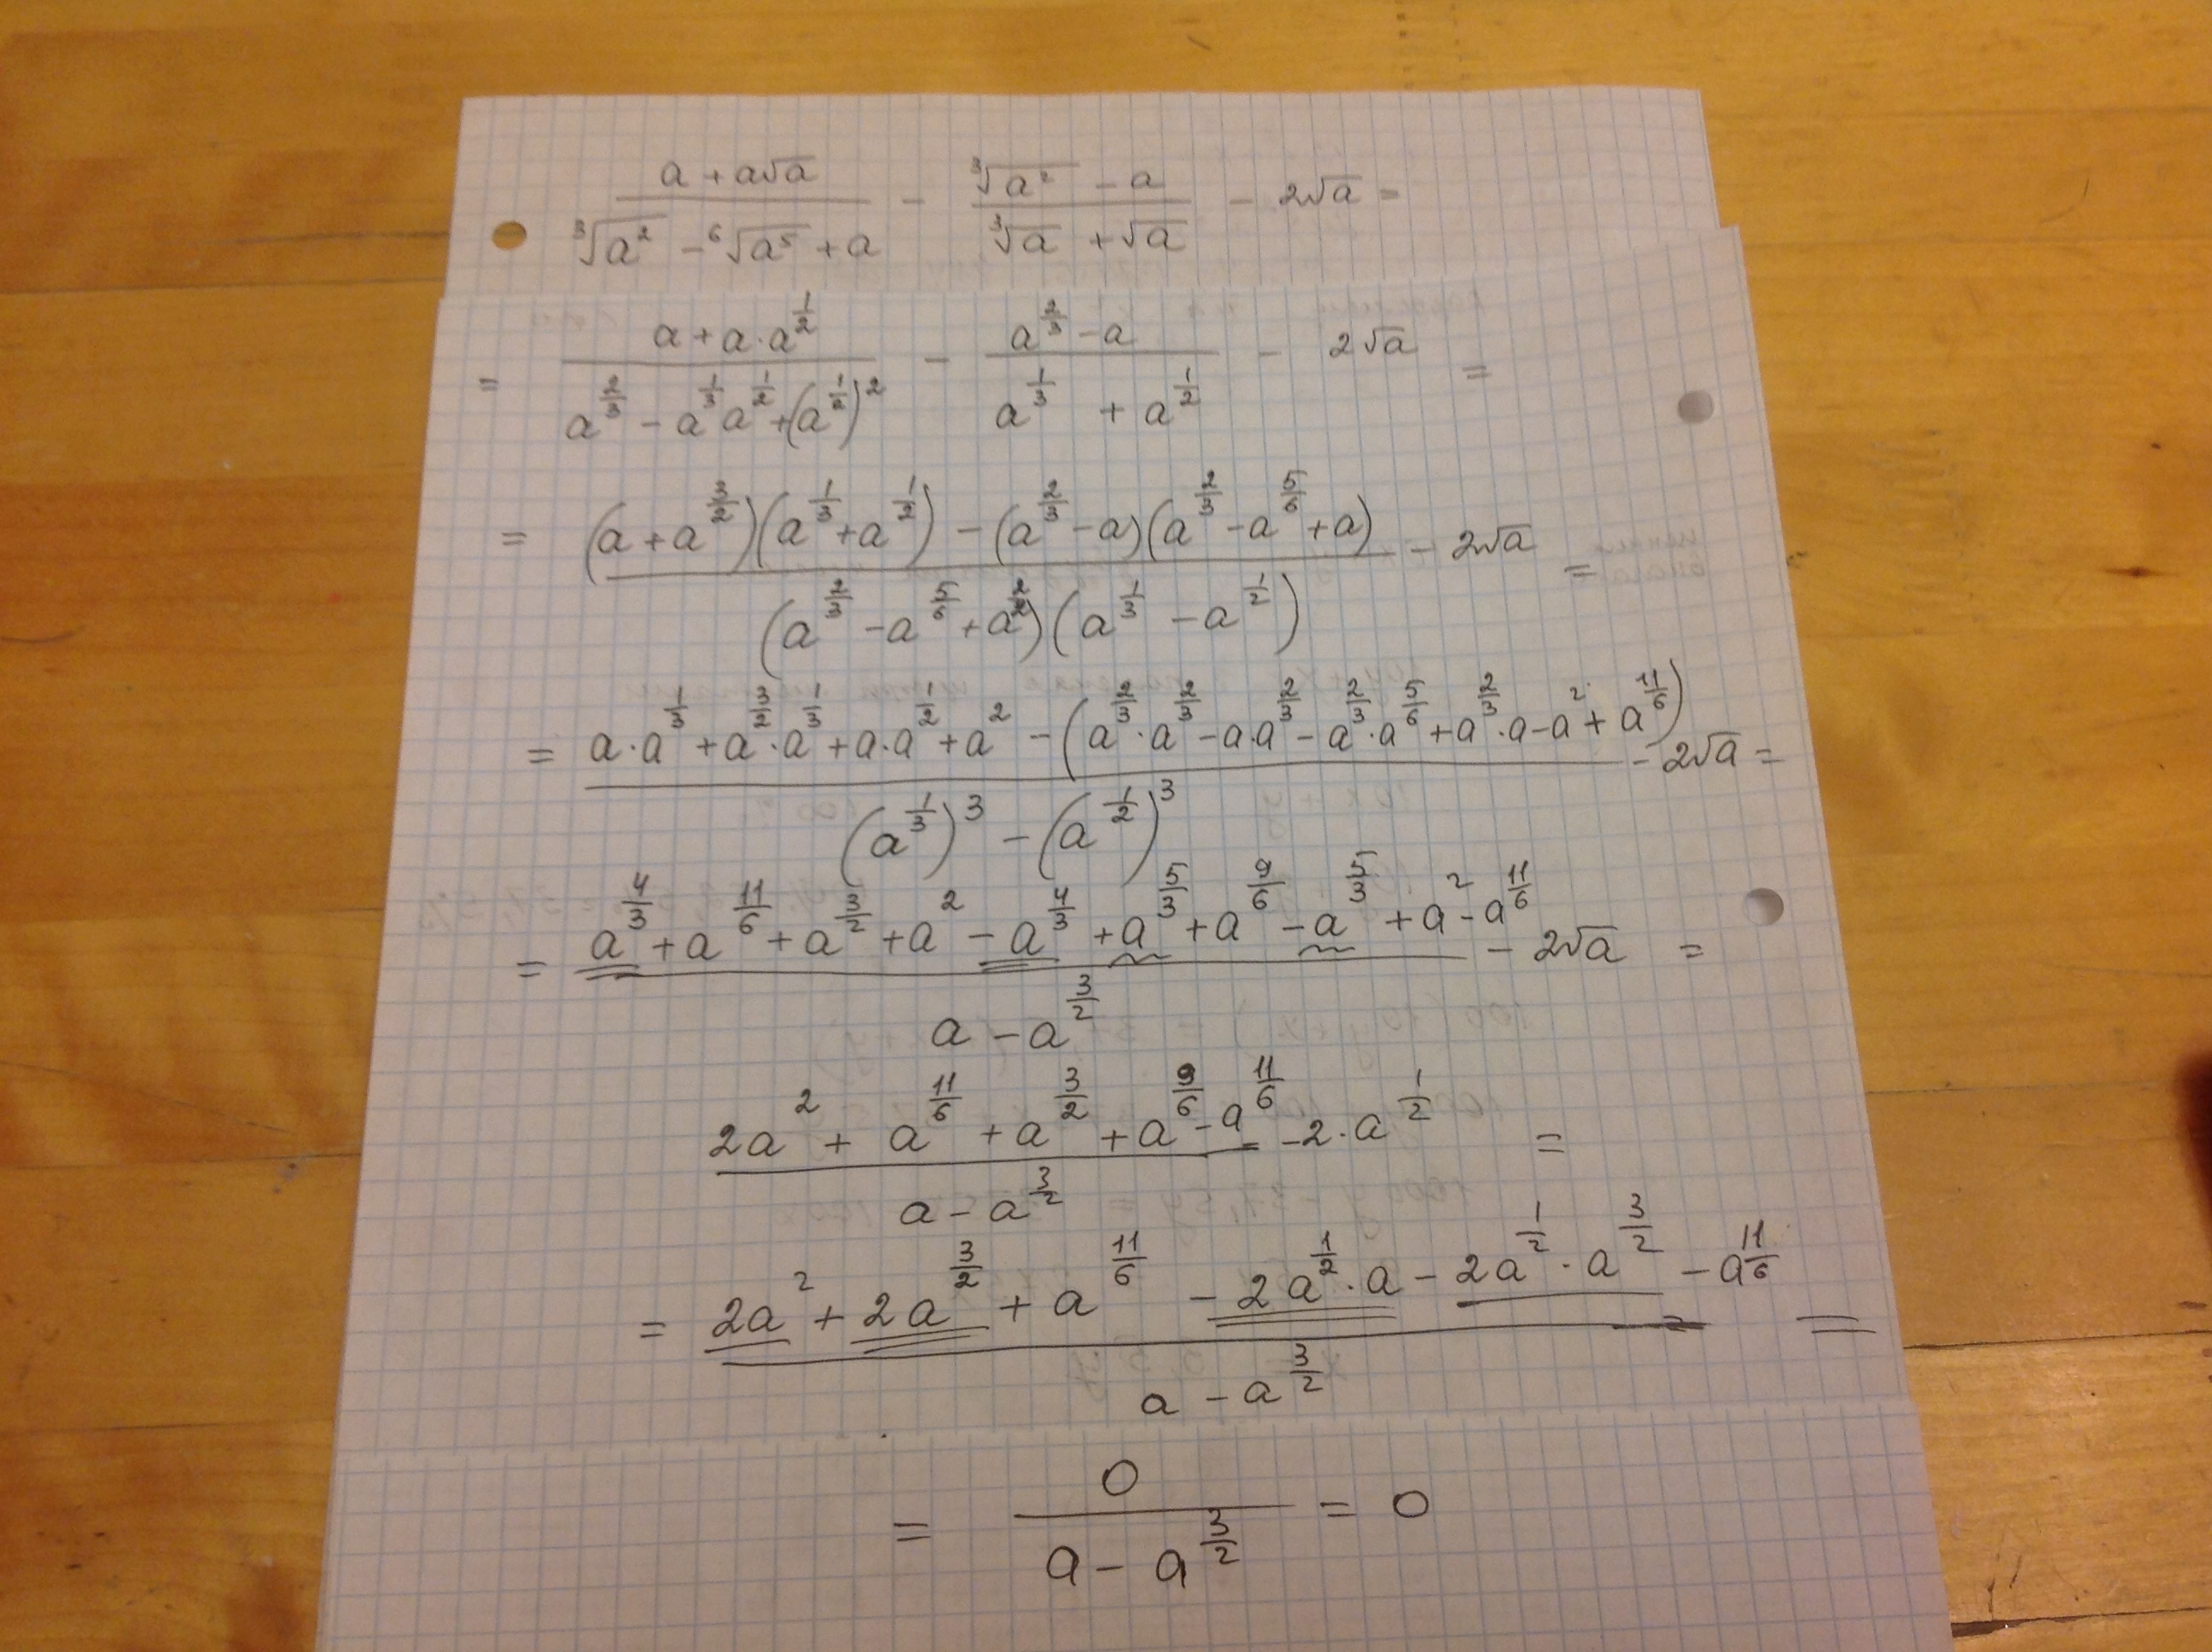 (a + a√a)/(∛a² - ⁶√a⁵ + a) - (∛a² - a)/(∛a + √a) - 2√a =
= (a + a·a^(1/2))/(a^(2/3) - a^(1/3) a^(1/2) + (a^(1/2))²) - (a^(2/3) - a)/(a^(1/3) + a^(1/2)) - 2√a =
= ((a + a^(3/2))(a^(1/3) + a^(1/2)) - (a^(2/3) - a)(a^(2/3) - a^(5/6) + a))/((a^(2/3) - a^(5/6) + a^(2/2))(a^(1/3) - a^(1/2))) - 2√a =
= (a·a^(1/3) + a^(3/2)·a^(1/3) + a·a^(1/2) + a² - (a^(2/3)·a^(2/3) - a·a^(2/3) - a^(2/3)·a^(5/6) + a^(2/3)·a - a² + a^(11/6)))/((a^(1/3))³ - (a^(1/2))³) - 2√a =
= (a^(4/3) + a^(11/6) + a^(3/2) + a² - a^(4/3) + a^(5/3) + a^(9/6) - a^(5/3) + a² - a^(11/6))/(a - a^(3/2)) - 2√a =
(2a² + a^(11/6) + a^(3/2) + a^(9/6) - a^(11/6))/(a - a^(3/2)) - 2·a^(1/2) =
= (2a² + 2a^(3/2) + a^(11/6) - 2a^(1/2)·a - 2a^(1/2)·a^(3/2) - a^(11/6))/(a - a^(3/2)) =
= 0/(a - a^(3/2)) = 0